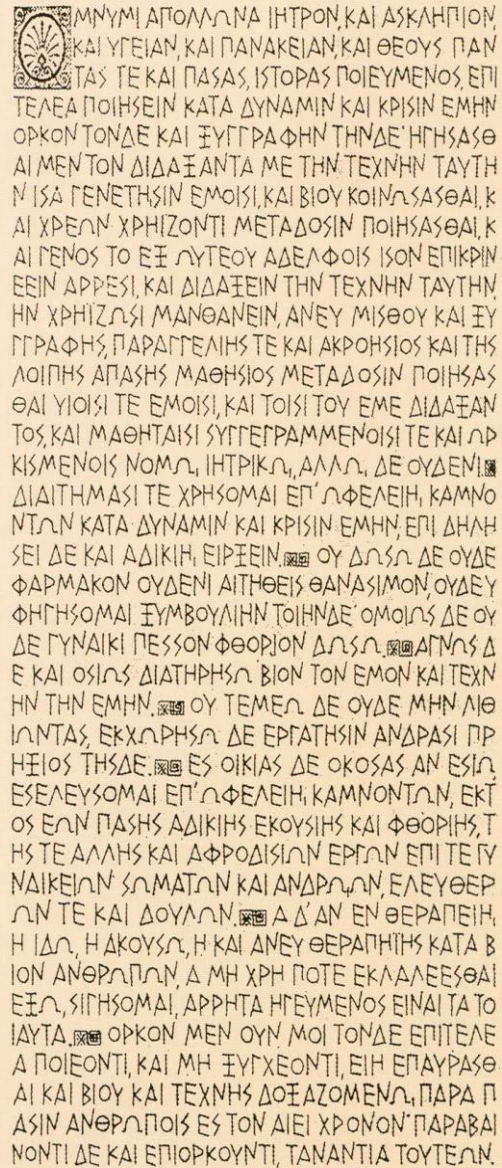 ΟΜΝΥΜΙ ΑΠΟΛΛΩΝΑ ΙΗΤΡΟΝ, ΚΑΙ ΑΣΚΛΗΠΙΟΝ,
ΚΑΙ ΥΓΕΙΑΝ, ΚΑΙ ΠΑΝΑΚΕΙΑΝ, ΚΑΙ ΘΕΟΥΣ ΠΑΝ
ΤΑΣ ΤΕ ΚΑΙ ΠΑΣΑΣ, ΙΣΤΟΡΑΣ ΠΟΙΕΥΜΕΝΟΣ, ΕΠΙ
ΤΕΛΕΑ ΠΟΙΗΣΕΙΝ ΚΑΤΑ ΔΥΝΑΜΙΝ ΚΑΙ ΚΡΙΣΙΝ ΕΜΗΝ
ΟΡΚΟΝ ΤΟΝΔΕ ΚΑΙ ΞΥΓΓΡΑΦΗΝ ΤΗΝΔΕ· ΗΓΗΣΑΣΘ
ΑΙ ΜΕΝ ΤΟΝ ΔΙΔΑΞΑΝΤΑ ΜΕ ΤΗΝ ΤΕΧΝΗΝ ΤΑΥΤΗ
Ν ΙΣΑ ΓΕΝΕΤΗΣΙΝ ΕΜΟΙΣΙ, ΚΑΙ ΒΙΟΥ ΚΟΙΝΩΣΑΣΘΑΙ, Κ
ΑΙ ΧΡΕΩΝ ΧΡΗΙΖΟΝΤΙ ΜΕΤΑΔΟΣΙΝ ΠΟΙΗΣΑΣΘΑΙ, Κ
ΑΙ ΓΕΝΟΣ ΤΟ ΕΞ ΩΥΤΕΟΥ ΑΔΕΛΦΟΙΣ ΙΣΟΝ ΕΠΙΚΡΙΝ
ΕΕΙΝ ΑΡΡΕΣΙ, ΚΑΙ ΔΙΔΑΞΕΙΝ ΤΗΝ ΤΕΧΝΗΝ ΤΑΥΤΗΝ
ΗΝ ΧΡΗΪΖΩΣΙ ΜΑΝΘΑΝΕΙΝ, ΑΝΕΥ ΜΙΣΘΟΥ ΚΑΙ ΞΥ
ΓΓΡΑΦΗΣ, ΠΑΡΑΓΓΕΛΙΗΣ ΤΕ ΚΑΙ ΑΚΡΟΗΣΙΟΣ ΚΑΙ ΤΗΣ
ΛΟΙΠΗΣ ΑΠΑΣΗΣ ΜΑΘΗΣΙΟΣ ΜΕΤΑΔΟΣΙΝ ΠΟΙΗΣΑΣ
ΘΑΙ ΥΙΟΙΣΙ ΤΕ ΕΜΟΙΣΙ, ΚΑΙ ΤΟΙΣΙ ΤΟΥ ΕΜΕ ΔΙΔΑΞΑΝ
ΤΟΣ, ΚΑΙ ΜΑΘΗΤΑΙΣΙ ΣΥΓΓΕΓΡΑΜΜΕΝΟΙΣΙ ΤΕ ΚΑΙ ΩΡ
ΚΙΣΜΕΝΟΙΣ ΝΟΜΩι, ΙΗΤΡΙΚΩι, ΑΛΛΩι, ΔΕ ΟΥΔΕΝΙ.
ΔΙΑΙΤΗΜΑΣΙ ΤΕ ΧΡΗΣΟΜΑΙ ΕΠ' ΩΦΕΛΕΙΗι, ΚΑΜΝΟ
ΝΤΩΝ ΚΑΤΑ ΔΥΝΑΜΙΝ ΚΑΙ ΚΡΙΣΙΝ ΕΜΗΝ, ΕΠΙ ΔΗΛΗ
ΣΕΙ ΔΕ ΚΑΙ ΑΔΙΚΙΗι, ΕΙΡΞΕΙΝ. ΟΥ ΔΩΣΩ ΔΕ ΟΥΔΕ
ΦΑΡΜΑΚΟΝ ΟΥΔΕΝΙ ΑΙΤΗΘΕΙΣ ΘΑΝΑΣΙΜΟΝ, ΟΥΔΕ Υ
ΦΗΓΗΣΟΜΑΙ ΞΥΜΒΟΥΛΙΗΝ ΤΟΙΗΝΔΕ· ΟΜΟΙΩΣ ΔΕ ΟΥ
ΔΕ ΓΥΝΑΙΚΙ ΠΕΣΣΟΝ ΦΘΟΡΙΟΝ ΔΩΣΩ. ΑΓΝΩΣ Δ
Ε ΚΑΙ ΟΣΙΩΣ ΔΙΑΤΗΡΗΣΩ ΒΙΟΝ ΤΟΝ ΕΜΟΝ ΚΑΙ ΤΕΧΝ
ΗΝ ΤΗΝ ΕΜΗΝ. ΟΥ ΤΕΜΕΩ ΔΕ ΟΥΔΕ ΜΗΝ ΛΙΘ
ΙΩΝΤΑΣ, ΕΚΧΩΡΗΣΩ ΔΕ ΕΡΓΑΤΗΣΙΝ ΑΝΔΡΑΣΙ ΠΡ
ΗΞΙΟΣ ΤΗΣΔΕ. ΕΣ ΟΙΚΙΑΣ ΔΕ ΟΚΟΣΑΣ ΑΝ ΕΣΙΩ
ΕΣΕΛΕΥΣΟΜΑΙ ΕΠ' ΩΦΕΛΕΙΗι, ΚΑΜΝΟΝΤΩΝ, ΕΚΤ
ΟΣ ΕΩΝ ΠΑΣΗΣ ΑΔΙΚΙΗΣ ΕΚΟΥΣΙΗΣ ΚΑΙ ΦΘΟΡΙΗΣ, Τ
ΗΣ ΤΕ ΑΛΛΗΣ ΚΑΙ ΑΦΡΟΔΙΣΙΩΝ ΕΡΓΩΝ ΕΠΙ ΤΕ ΓΥ
ΝΑΙΚΕΙΩΝ ΣΩΜΑΤΩΝ ΚΑΙ ΑΝΔΡΩιΩΝ, ΕΛΕΥΘΕΡ
ΩΝ ΤΕ ΚΑΙ ΔΟΥΛΩΝ. Α Δ' ΑΝ ΕΝ ΘΕΡΑΠΕΙΗι,
Η ΙΔΩ, Η ΑΚΟΥΣΩ, Η ΚΑΙ ΑΝΕΥ ΘΕΡΑΠΗΪΗΣ ΚΑΤΑ Β
ΙΟΝ ΑΝΘΡΩΠΩΝ, Α ΜΗ ΧΡΗ ΠΟΤΕ ΕΚΛΑΛΕΕΣΘΑΙ
ΕΞΩ, ΣΙΓΗΣΟΜΑΙ, ΑΡΡΗΤΑ ΗΓΕΥΜΕΝΟΣ ΕΙΝΑΙ ΤΑ ΤΟ
ΙΑΥΤΑ. ΟΡΚΟΝ ΜΕΝ ΟΥΝ ΜΟΙ ΤΟΝΔΕ ΕΠΙΤΕΛΕ
Α ΠΟΙΕΟΝΤΙ, ΚΑΙ ΜΗ ΞΥΓΧΕΟΝΤΙ, ΕΙΗ ΕΠΑΥΡΑΣΘ
ΑΙ ΚΑΙ ΒΙΟΥ ΚΑΙ ΤΕΧΝΗΣ ΔΟΞΑΖΟΜΕΝΩι, ΠΑΡΑ Π
ΑΣΙΝ ΑΝΘΡΩΠΟΙΣ ΕΣ ΤΟΝ ΑΙΕΙ ΧΡΟΝΟΝ· ΠΑΡΑΒΑΙ
ΝΟΝΤΙ ΔΕ ΚΑΙ ΕΠΙΟΡΚΟΥΝΤΙ, ΤΑΝΑΝΤΙΑ ΤΟΥΤΕΩΝ.